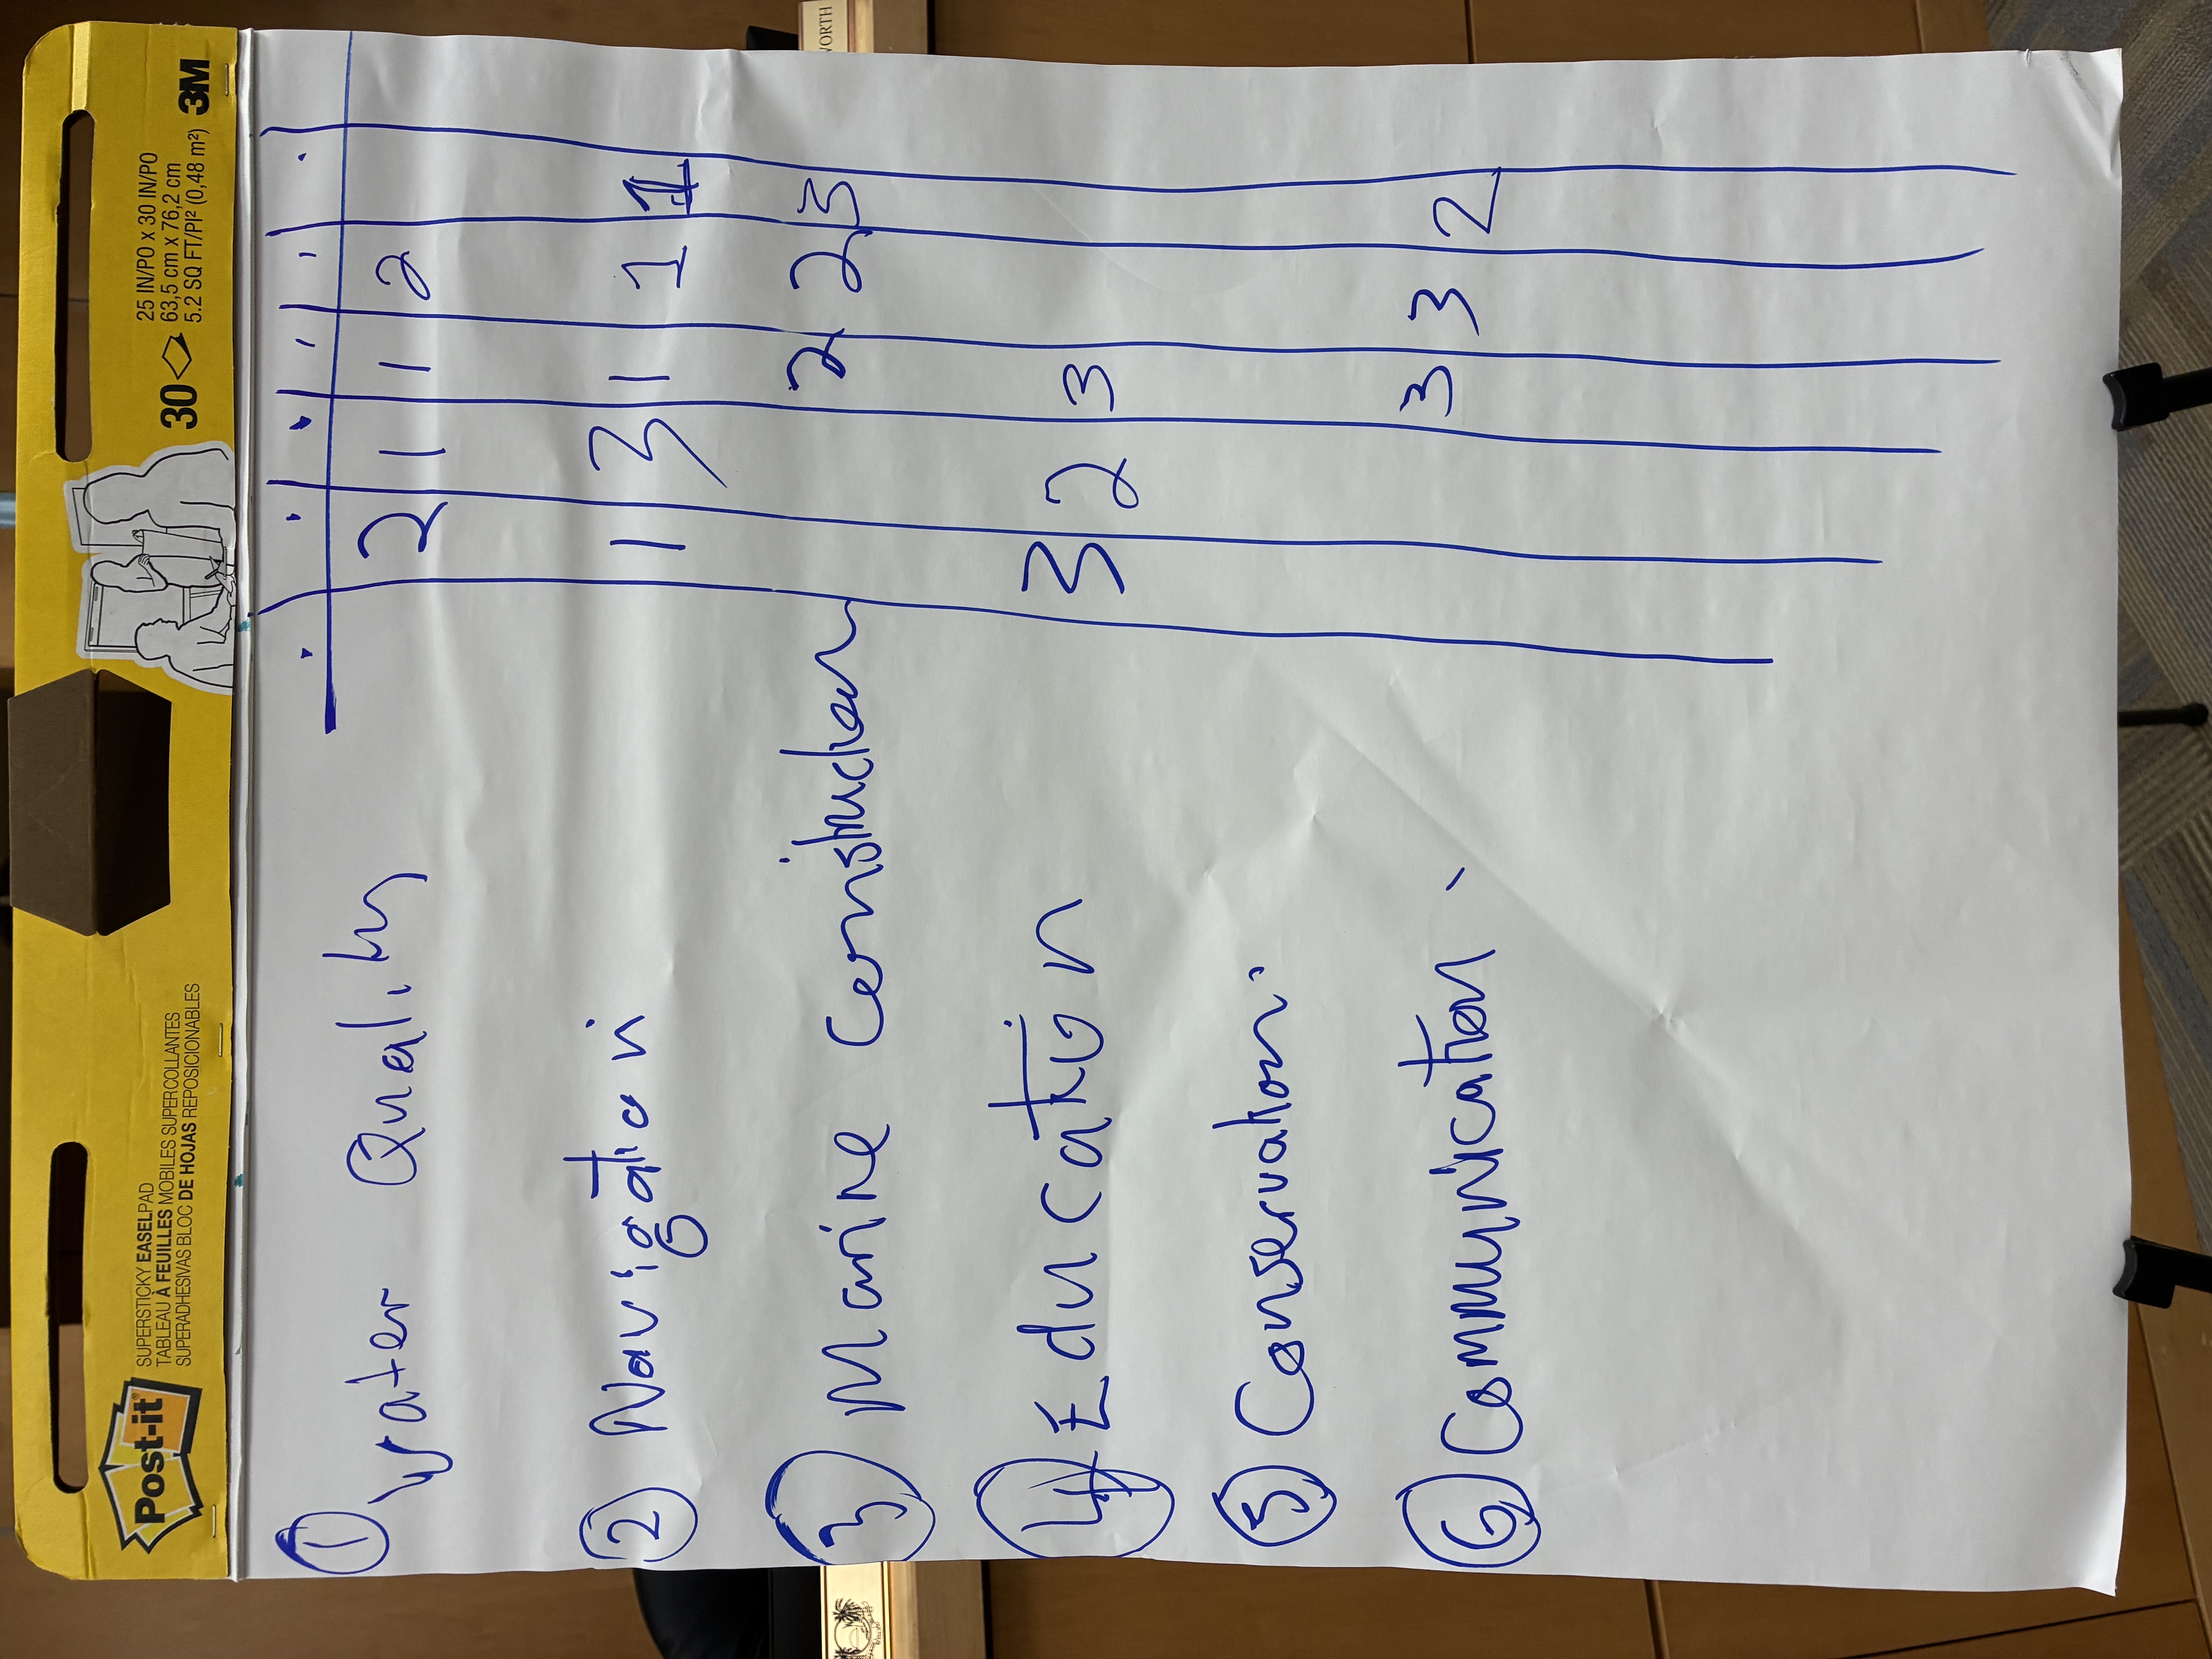 Post-it
SUPERSTICKY EASELPAD
TABLEAU À FEUILLES MOBILES SUPERCOLLANTES
SUPERADHESIVAS BLOC DE HOJAS REPOSICIONABLES
30
25 IN/PO x 30 IN/PO
63,5 cm x 76,2 cm
5.2 SQ FT/PI² (0,48 m²)
3M
WORTH
① Water Quality 2 1 1 2
② Navigation 1 3 1 1 1
③ Marine Construction 2 2 3
④ Education 3 2 3
⑤ Conservation.
⑥ Communication. 3 3 2